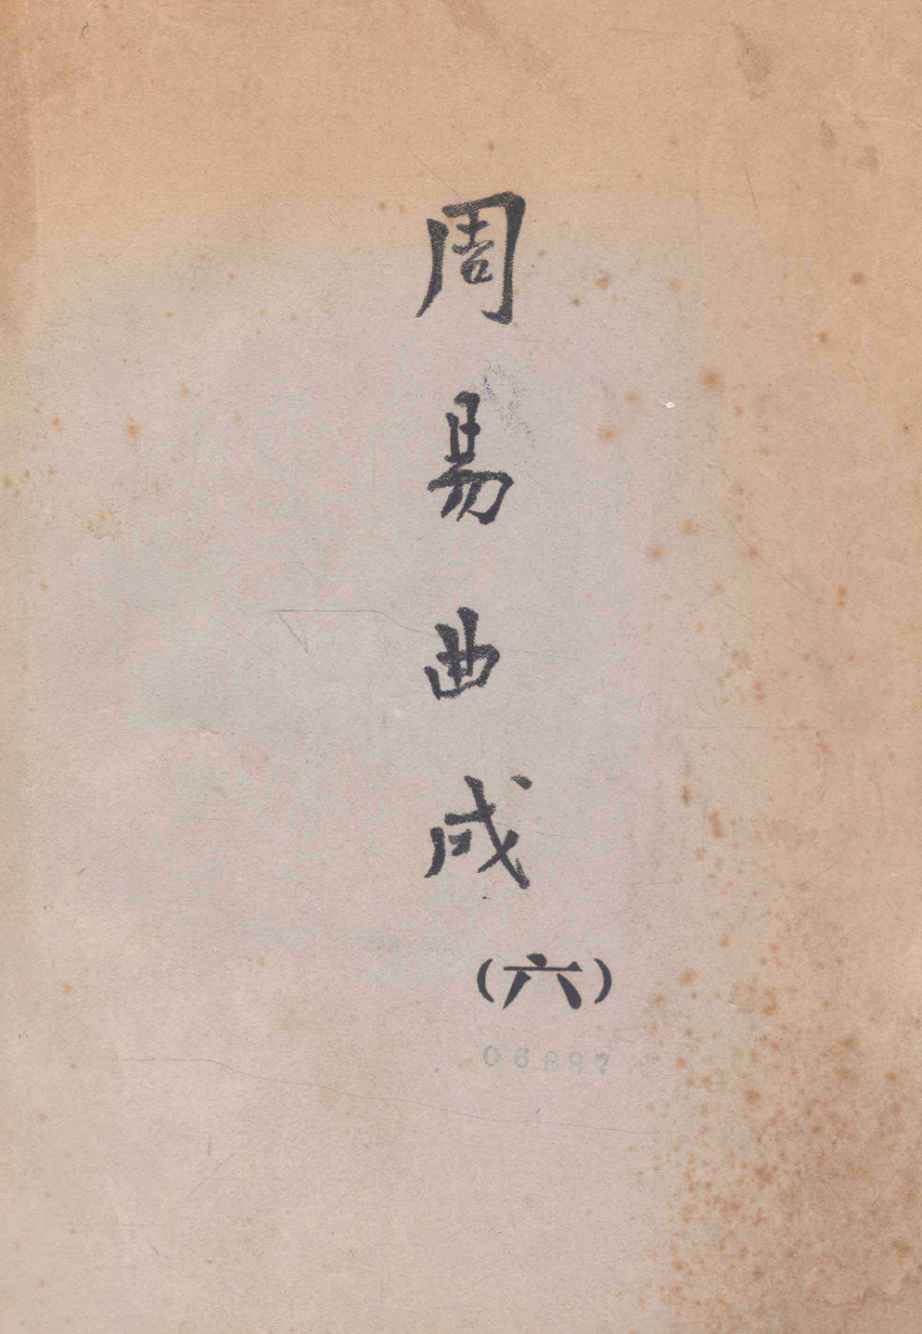 周易曲成
(六)
06887